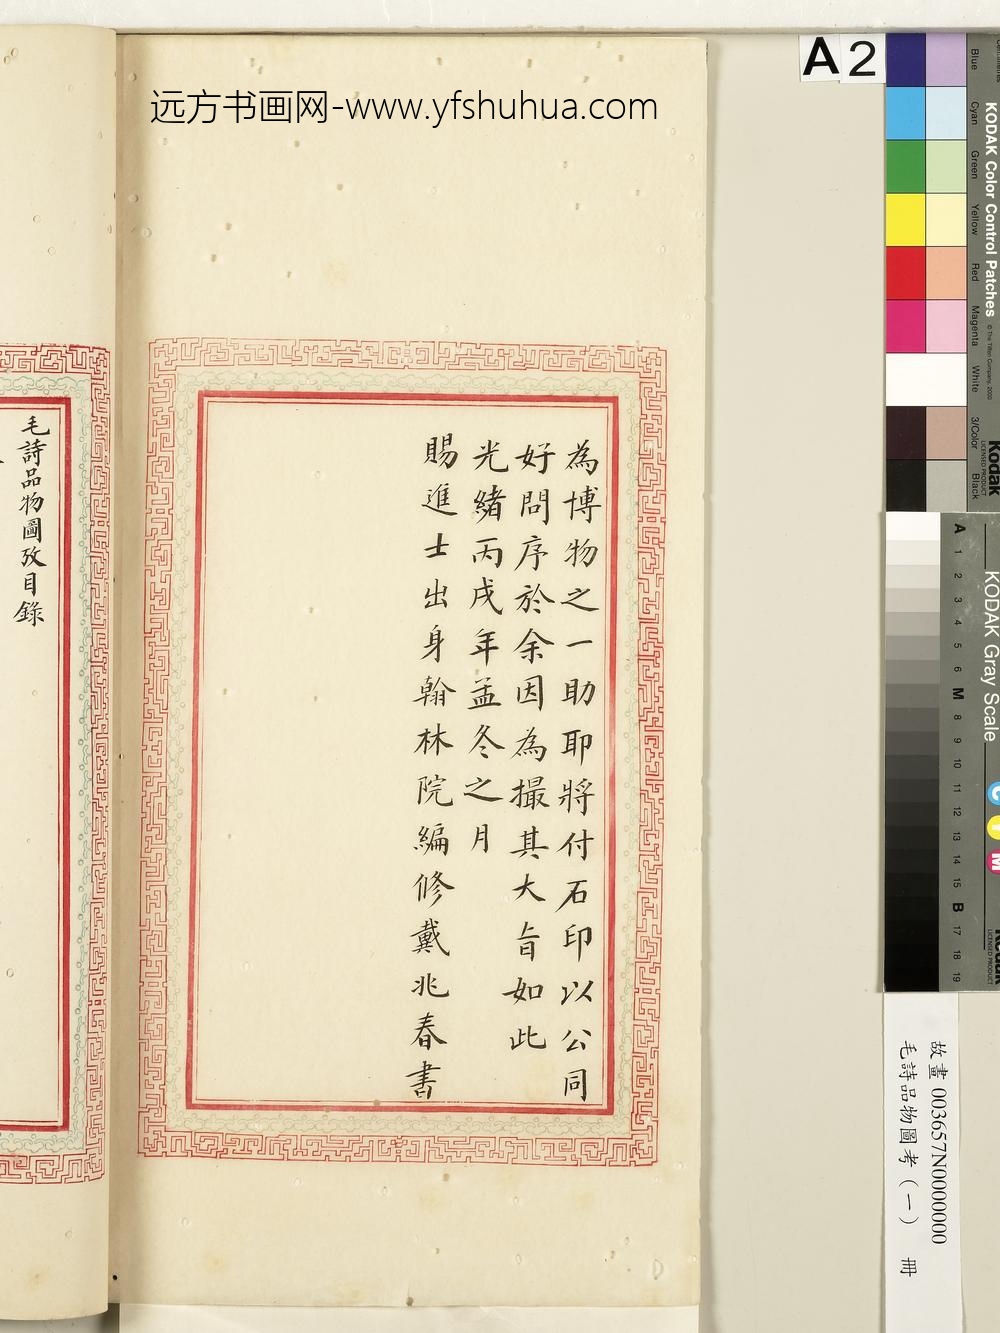 远方书画网-www.yfshuhua.com
為博物之一助耶將付石印以公同
好問序於余因為撮其大旨如此
光緒丙戌年孟冬之月
賜進士出身翰林院編修戴兆春書
毛詩品物圖攷目錄
A 2
KODAK Color Control Patches
© The Tiffen Company, 2000
Kodak
LICENSED PRODUCT
Blue
Cyan
Green
Yellow
Red
Magenta
White
3/Color
Black
KODAK Gray Scale
A 1 2 3 4 5 6 M 8 9 10 11 12 13 14 15 B 17 18 19
C
Y
M
Kodak
LICENSED PRODUCT
故畫 003657N0000000
毛詩品物圖考（一） 冊